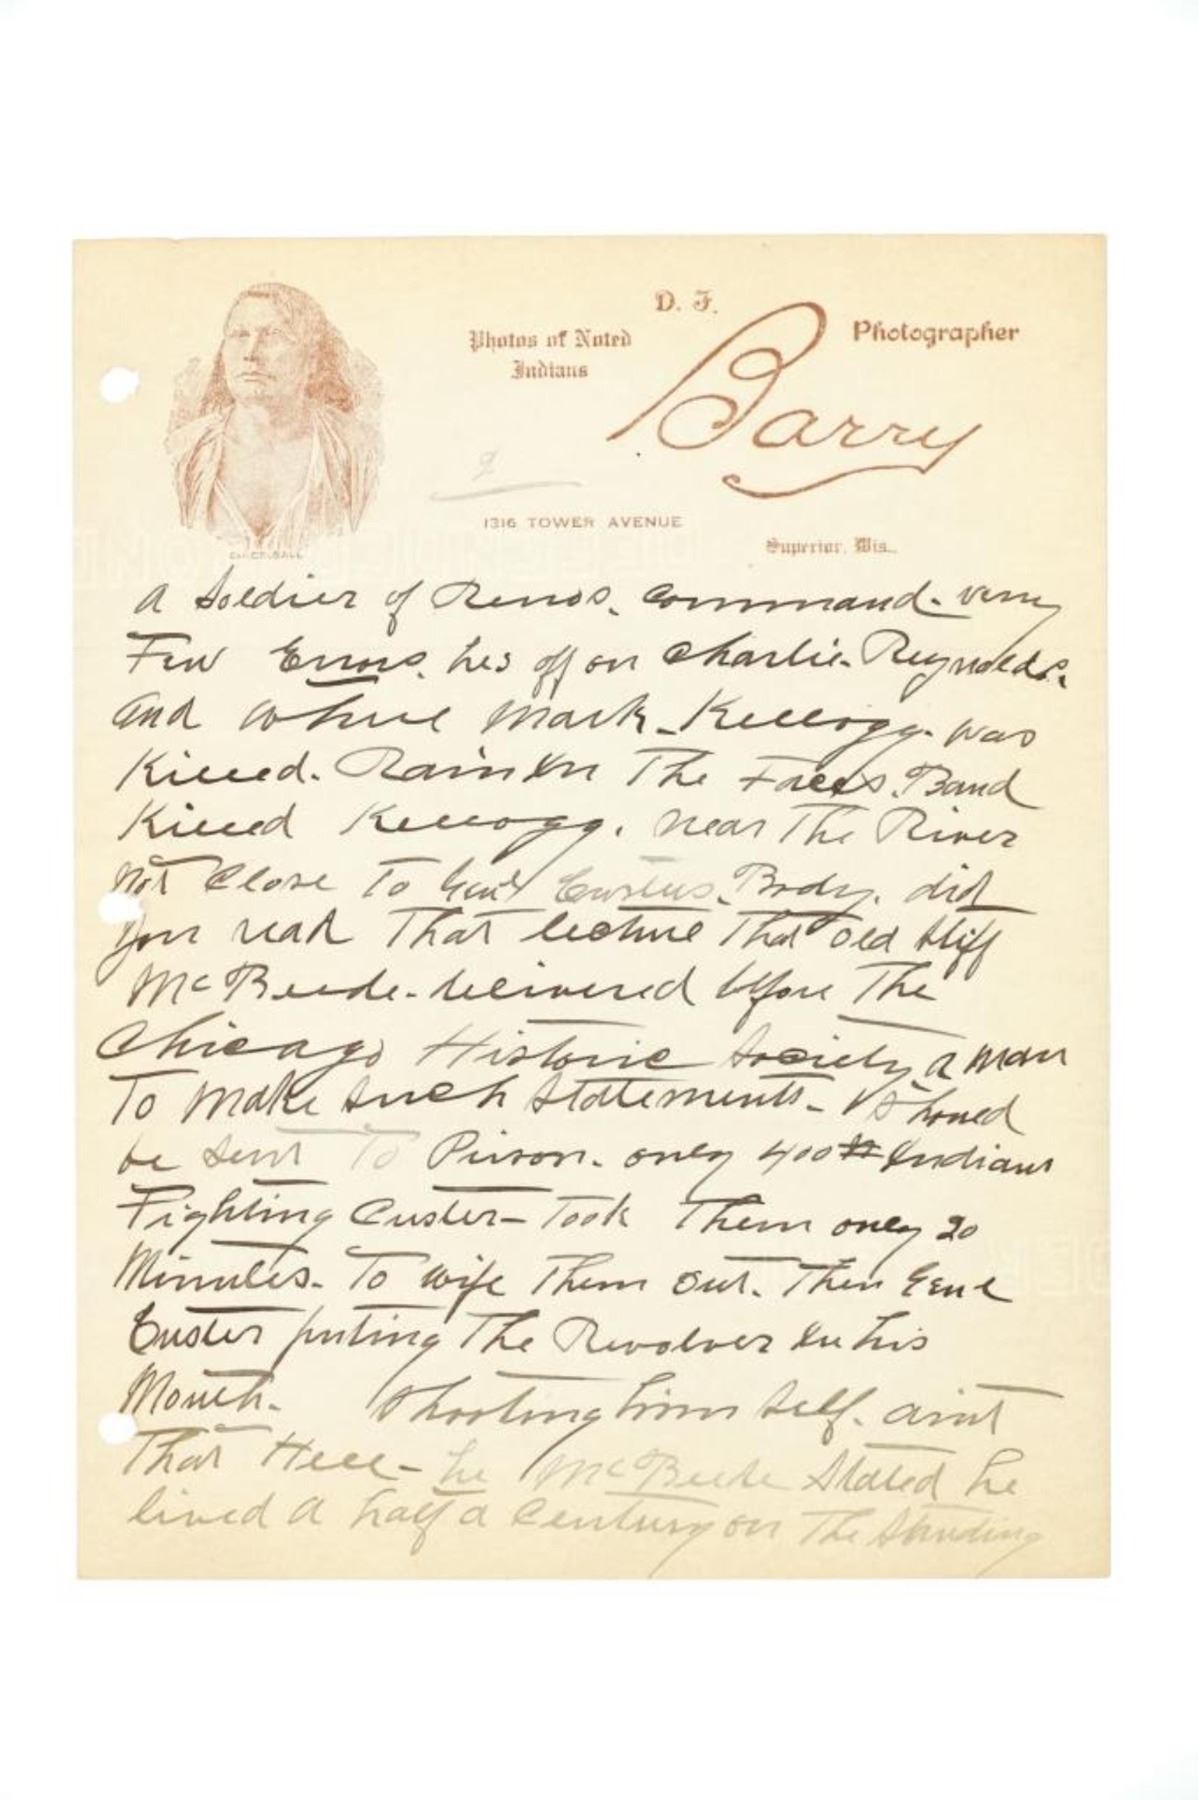 D. F.
Barry
Photographer
Photos of Noted
Indians
2
1316 TOWER AVENUE
Superior, Wis.
CHIEF GALL
A Soldier of Renos. Command. very
Few Errors. hes off on Charlie. Reynolds.
and where Mark. Kellogg. was
Killed. Rain In The Faces. Band
Killed Kellogg. near The River
not Close To Genl Custers. Body. did
you read That lecture That old stiff
McBeede. delivered before The
Chicago Historic Society a man
To make such statements - should
be sent To Prison. only 400 Indians
Fighting Custer - Took Them only 20
Minutes. To wipe Them out. Then Genl
Custer puting The Revolver In his
Mouth. Shooting him self. aint
That Hell - he McBeede Stated he
lived a half a Century on The Standing